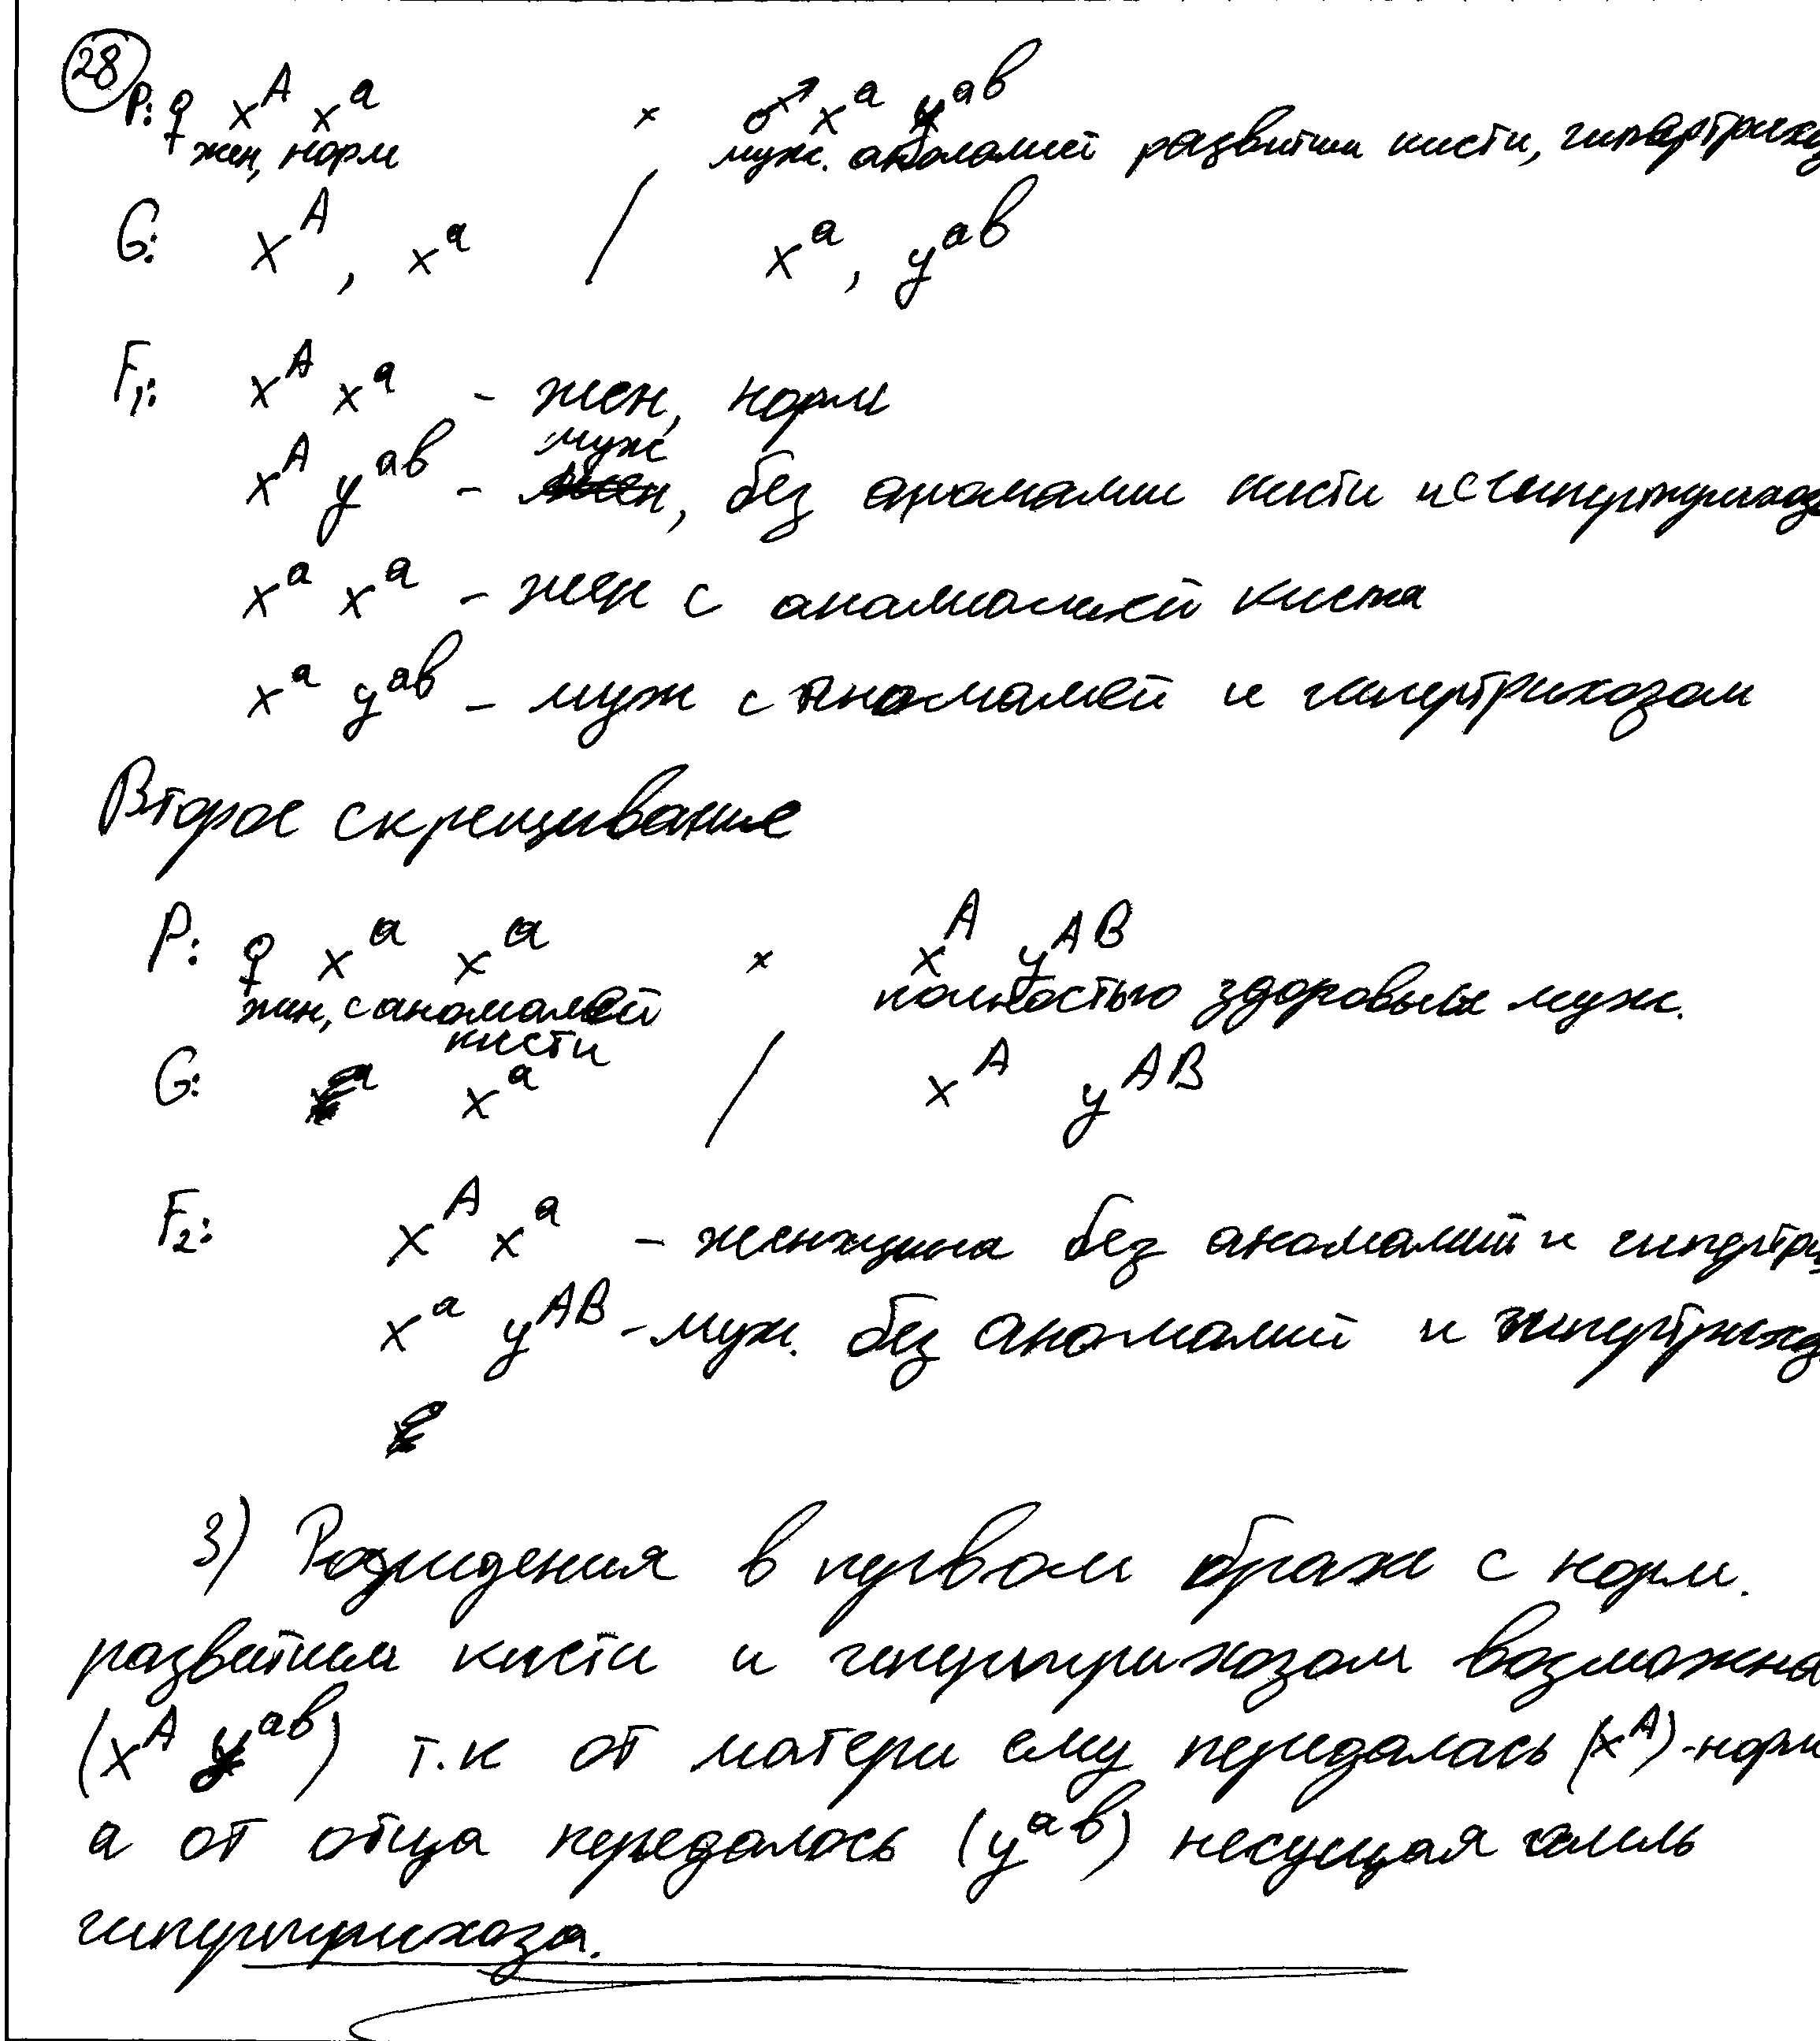 28
P: ♀ x^A x^a × ♂ x^a y^ав
жен, норм муж. аномалией развитии кисти, гипертрихоз
G: x^A, x^a / x^a, y^ав
F1: x^A x^a - жен, норм
муж
x^A y^ав - жен, без аномалии кисти и с гипертрихоз
x^a x^a - жен с аномалией кисти
x^a y^ав - муж с аномалией и гипертрихозом
Второе скрещивание
P: ♀ x^a x^a × x^A y^AB
жен, с аномалией полностью здоровый муж.
кисти
G: x^a / x^A y^AB
F2: x^A x^a - женщина без аномалий и гипертри
x^a y^AB - муж. без аномалий и гипертрихо
3) Рождения в первом браке с норм.
развитием кисти и гипертрихозом возможна
(x^A y^ав) т.к от матери ему передалась (x^A) - норм
а от отца передалось (y^ав) несущая
гипертрихоза.